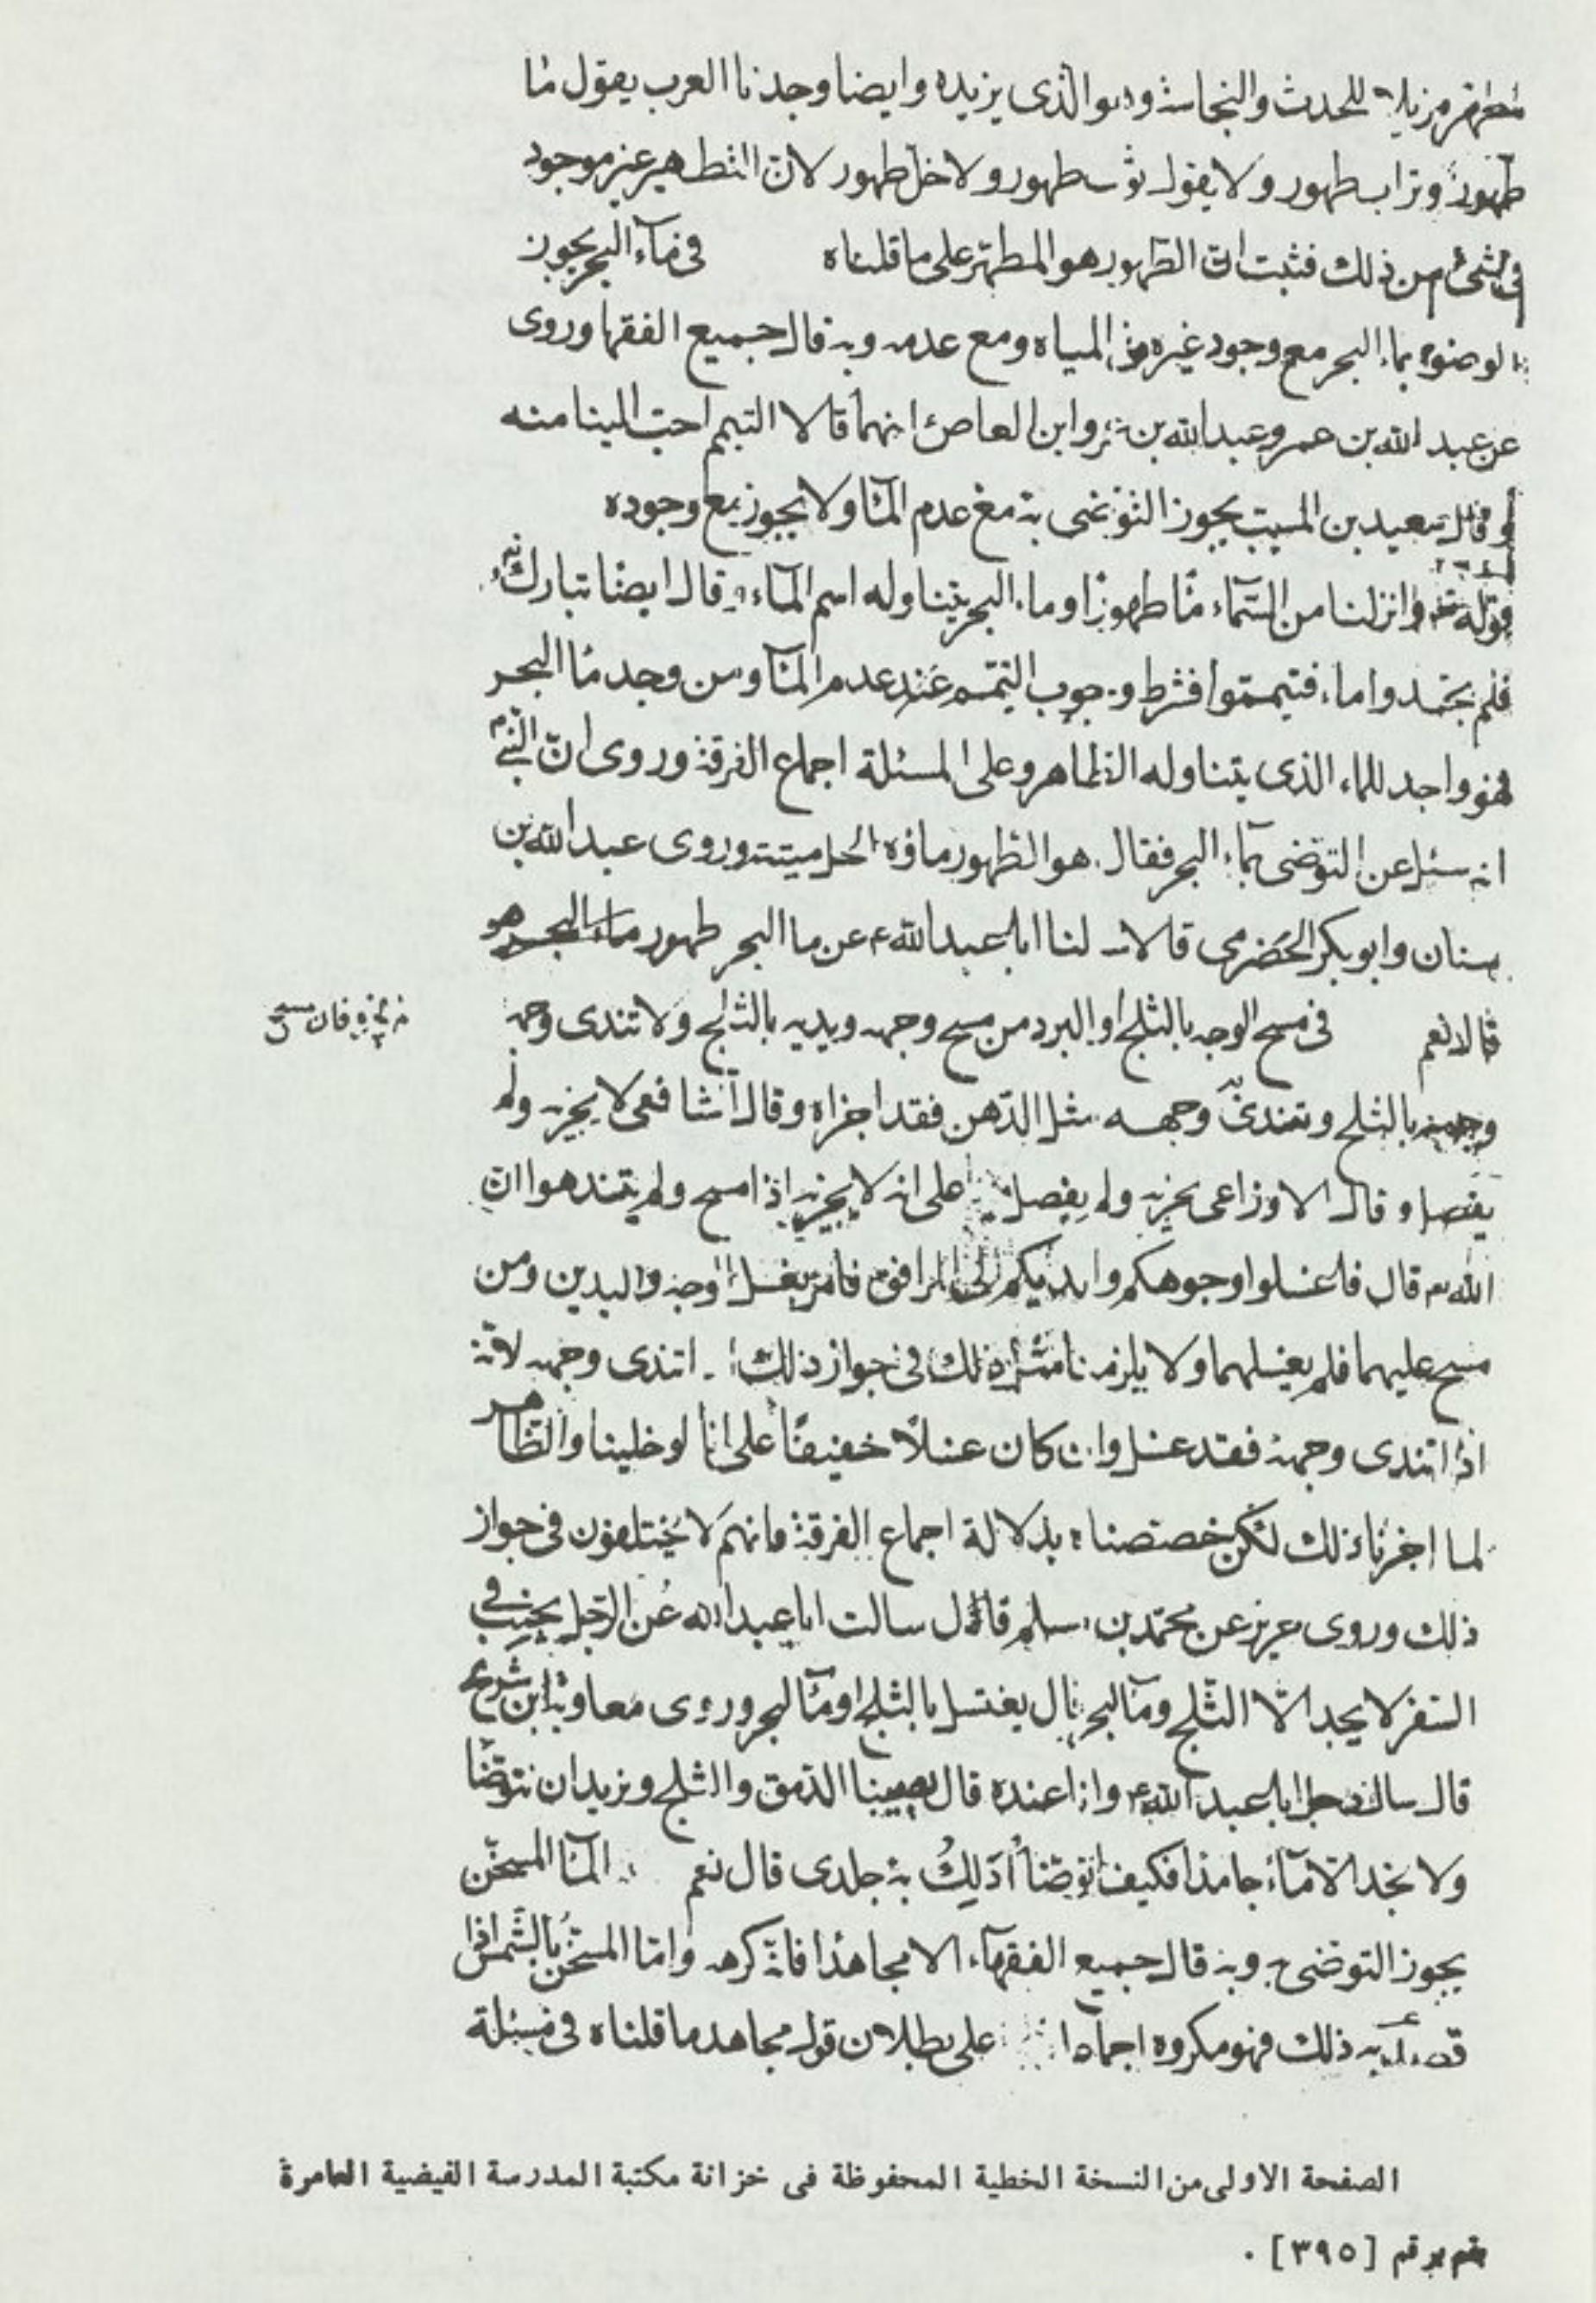 مطهر مزيلا للحدث والنجاسة وهو الذى يزيده وايضا وجدنا العرب يقول ما
طهور وتراب طهور ولا يقول ثوب طهور ولا خل طهور لان التطهير غير موجود
فى شئ من ذلك فثبت ان الطهور هو المطهر على ما قلناه فى مآء البحر يجوز
الوضوء بماء البحر مع وجود غيره من المياه ومع عدمه وبه قال جميع الفقها وروى
عن عبد الله بن عمر وعبد الله بن عمرو ابن العاص انهما قالا التيمم احب الينا منه
وقال سعيد بن المسيب يجوز التوضى به مع عدم المآ ولا يجوز مع وجوده
قوله تع وانزلنا من السمآء مآ طهورا وماء البحر يتناوله اسم المآء وقال ايضا تبارك
فلم تجدوا ماء فتيمموا فشرط وجوب التيمم عند عدم المآ ومن وجد مآ البحر
فهو واجد للماء الذى يتناوله الظاهر وعلى المسئلة اجماع الفرقة وروى ان النبى
انه سئل عن التوضى بمآء البحر فقال هو الطهور ماؤه الحل ميتته وروى عبد الله بن
سنان وابو بكر الحضرمى قالا سالنا ابا عبد الله ع عن ما البحر طهور ماء البحر هو
قالا نعم فى مسح الوجه بالثلج او البرد من مسح وجهه ويديه بالثلج ولا تندى وجهه
فان مسح
وجهه بالثلج وتندى وجهه مثل الدهن فقد اجزاه وقال الشافعى لا يجزيه ولم
يفصل وقال الاوزاعى يجزيه ولم يفصل على انه لا يجزيه اذا مسح ولم يتند هو ان
الله تع قال فاغسلوا وجوهكم وايديكم الى المرافق فامر بغسل الوجه واليدين ومن
مسح عليهما فلم يغسلهما ولا يلزمنا مثل ذلك فى جواز ذلك اذا تندى وجهه لانه
اذا تندى وجهه فقد غسل وان كان غسلا خفيفا على انا لو خلينا والظاهر
لما اجزنا ذلك لكن خصصناه بدلالة اجماع الفرقة فانهم لا يختلفون فى جواز
ذلك وروى حريز عن محمد بن مسلم قال سالت ابا عبد الله عن الرجل يجنب فى
السفر لا يجد الا الثلج ومآ البحر قال يغتسل بالثلج او مآ البحر وروى معاوية ابن شريح
قال سال رجل ابا عبد الله ع وانا عنده قال يصيبنا الدمق والثلج ونريد ان نتوضا
ولا نجد الا مآء جامدا فكيف اتوضا أدلك به جلدى قال نعم المآ المسخن
يجوز التوضى به وبه قال جميع الفقهآء الا مجاهدا فانه كرهه واما المسخن بالشمس اذا
قصد به ذلك فهو مكروه اجماعا على بطلان قول مجاهد ما قلناه فى مسئلة
الصفحة الاولى من النسخة الخطية المحفوظة فى خزانة مكتبة المدرسة الفيضية العامرة
بقم برقم [٣٩٥] .